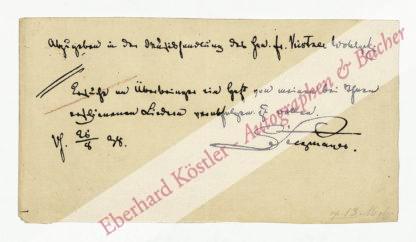 Abzugeben in der Musikhandlung des Hrn. Fr. Kistner Wohlgeb.
Ersuche an Überbringer ein Heft von meinen bei Ihnen
erschienenen Liedern verabfolgen zu wollen.
28
Eberhard Köstler - Autographen & Bücher